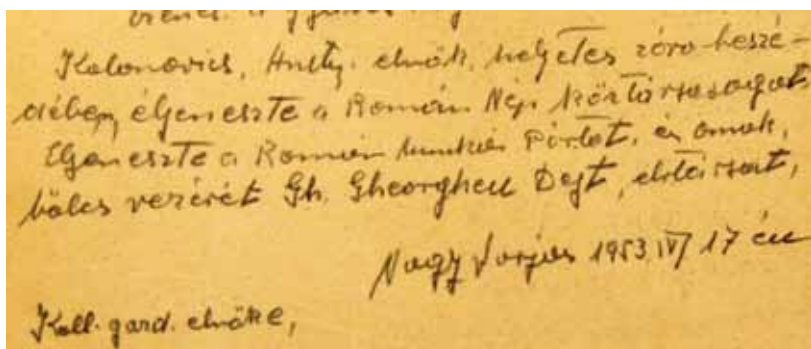 Kalonovics, Huszty. elnök, helyetes záro-beszé=
déhen, éljeneszte a Román Népi köztársaságot
Eljeneszte a Román Munkás Pártot, és annak,
bölcs vezérét Gh. Gheorgheu Dejt, elvtársat,
Nagy Varjas 1953 IV/ 17 én
Koll. gazd. elnöke,